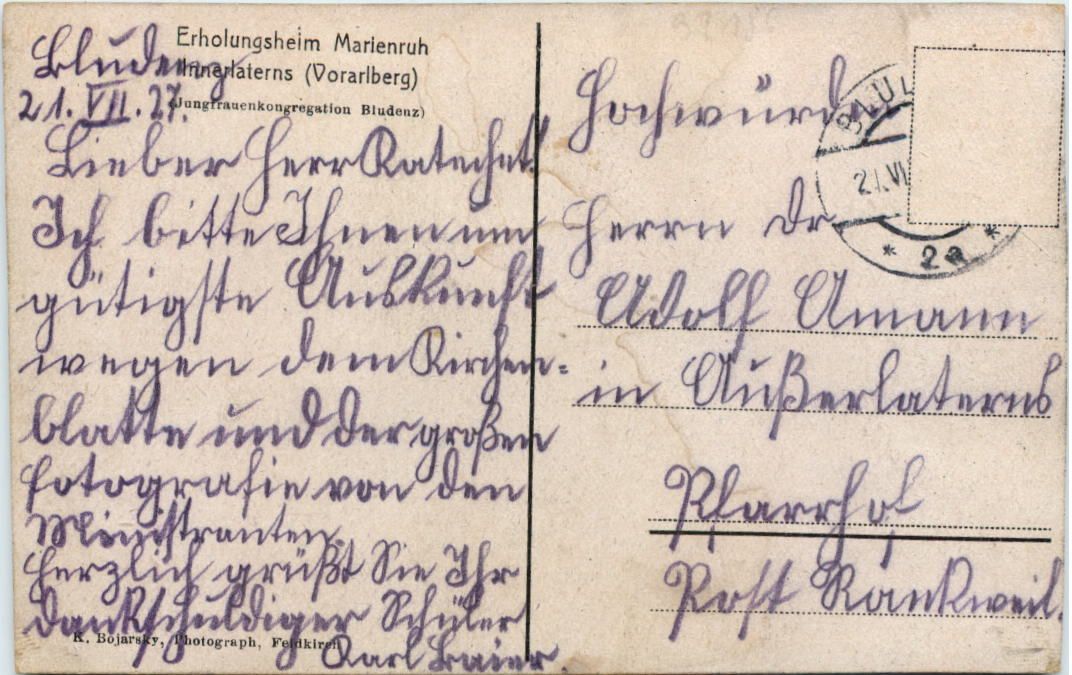 Erholungsheim Marienruh
Innerlaterns (Vorarlberg)
(Jungfrauenkongregation Bludenz)
Bludenz
21. VII. 27.
Lieber Herr Katechet!
Ich bitte Ihnen um
gütigste Auskunft
wegen dem Kirchen=
blatte und der großen
Fotografie von den
Ministranten.
Herzlich grüßt Sie Ihr
dankschuldiger Schüler
Karl Baier.
K. Bojarsky, Photograph, Feldkirch
Hochwürden
Herrn Dr
Adolf Amann
in Außerlaterns
Pfarrhof
Post Rankweil.
BLUD
21.VI
* 2a *